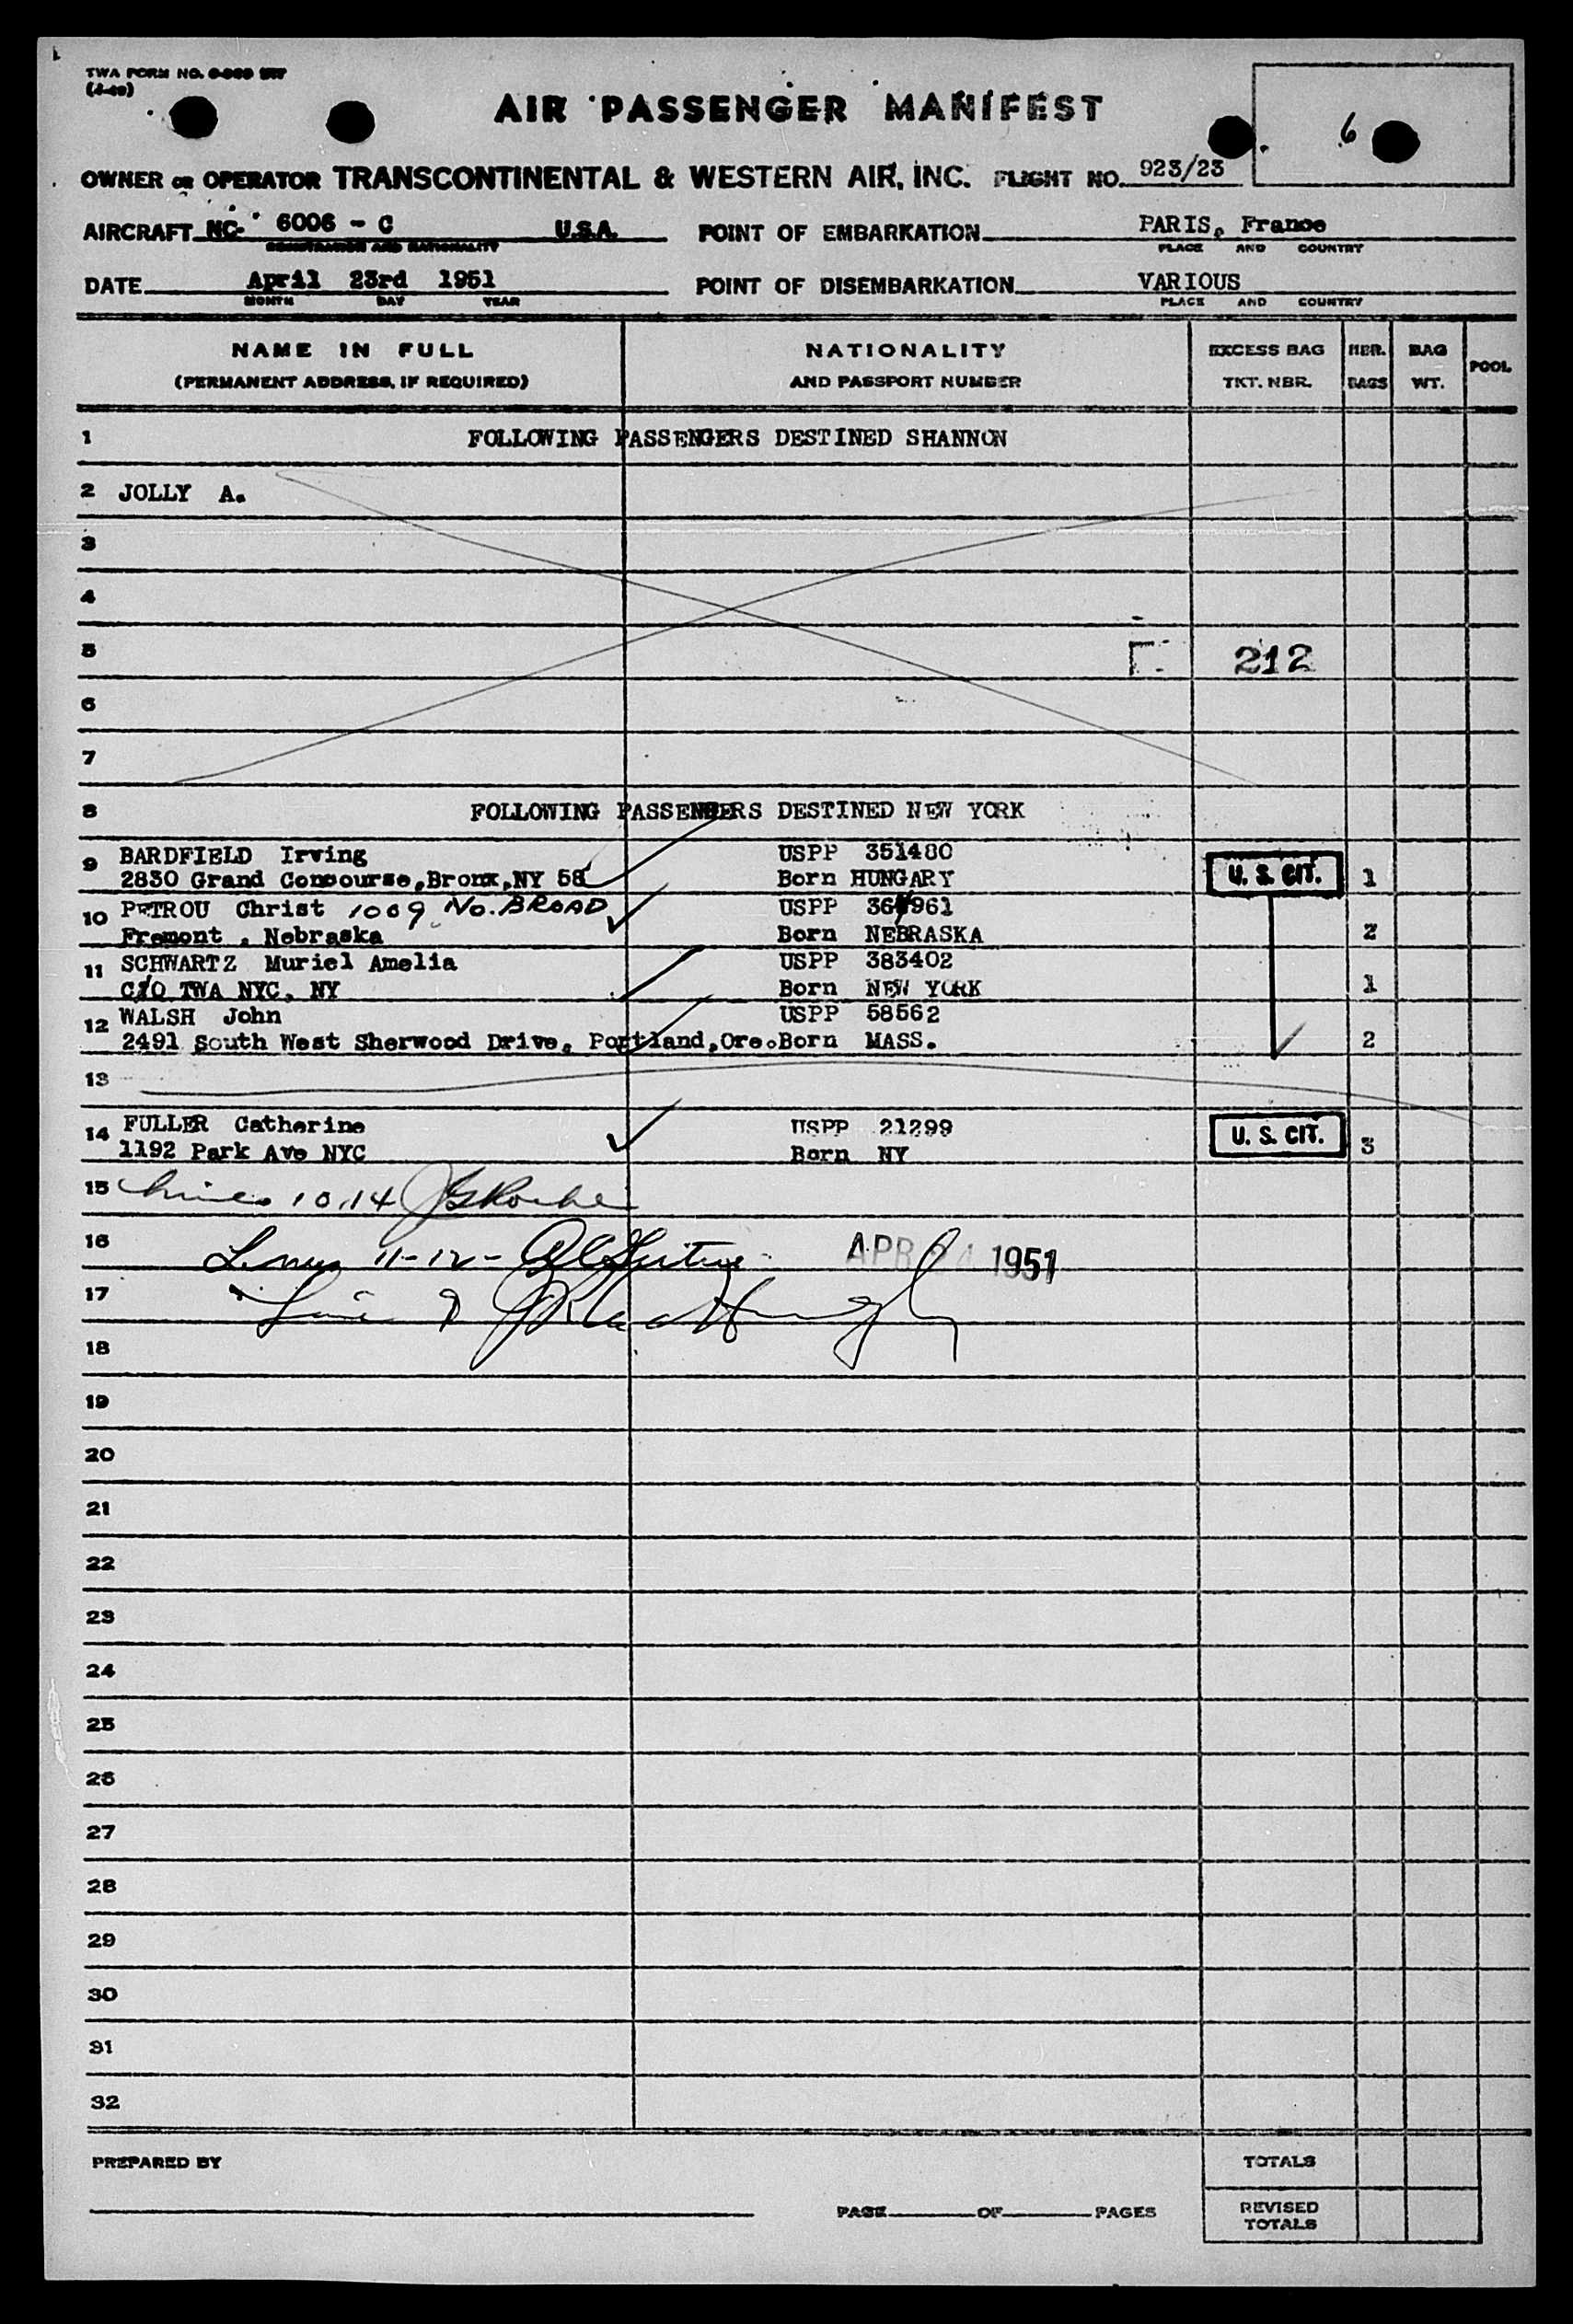 TWA FORM NO.
(J-49)
AIR PASSENGER MANIFEST
6
OWNER OR OPERATOR TRANSCONTINENTAL & WESTERN AIR, INC. FLIGHT NO. 923/23
AIRCRAFT NC- 6006 - C U.S.A. POINT OF EMBARKATION PARIS, France
REGISTRATION AND NATIONALITY PLACE AND COUNTRY
DATE April 23rd 1951 POINT OF DISEMBARKATION VARIOUS
MONTH DAY YEAR PLACE AND COUNTRY
NAME IN FULL NATIONALITY EXCESS BAG NBR. BAG POOL
(PERMANENT ADDRESS, IF REQUIRED) AND PASSPORT NUMBER TKT. NBR. BAGS WT.
1 FOLLOWING PASSENGERS DESTINED SHANNON
2 JOLLY A.
3
4
5 212
6
7
8 FOLLOWING PASSENGERS DESTINED NEW YORK
9 BARDFIELD Irving USPP 351480
2830 Grand Concourse,Bronx,NY 58 Born HUNGARY U. S. CIT. 1
10 PETROU Christ 1009 No. BROAD USPP 36 961
Fremont , Nebraska Born NEBRASKA 2
11 SCHWARTZ Muriel Amelia USPP 383402
C/O TWA NYC, NY Born NEW YORK 1
12 WALSH John USPP 58562
2491 South West Sherwood Drive, Portland,Ore. Born MASS. 2
13
14 FULLER Catherine USPP 21299
1192 Park Ave NYC Born NY U. S. CIT. 3
15 Lines 10,14
16 Lines 11-12- APR 24 1951
17 Line 9
18
19
20
21
22
23
24
25
26
27
28
29
30
31
32
PREPARED BY TOTALS
PAGE OF PAGES REVISED
TOTALS